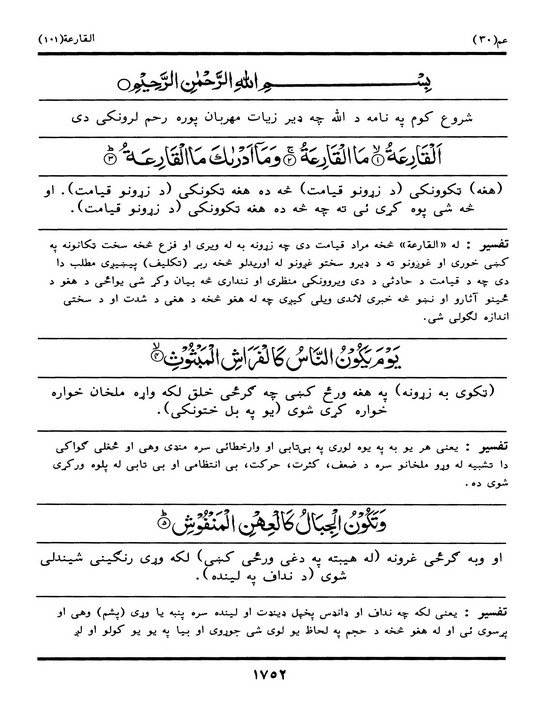 القارعة(۱۰۱)
عم(۳۰)
بِسْمِ اللهِ الرَّحْمٰنِ الرَّحِيْمِ○
شروع کوم په نامه د الله چه ډیر زیات مهربان پوره رحم لرونکی دی
اَلْقَارِعَةُ ۙ﴿۱﴾ مَا الْقَارِعَةُ ۚ﴿۲﴾ وَمَآ اَدْرٰىكَ مَا الْقَارِعَةُ ؕ﴿۳﴾
(هغه) ټکوونکی (د زړونو قیامت) څه ده هغه تکونکی (د زړونو قیامت). او
څه شی پوه کړی ئی ته چه څه ده هغه تکوونکی (د زړونو قیامت).
تفسیر : له «القارعة» څخه مراد قیامت دی چه زړونه به له ویری او فزع څخه سخت ټکانونه په
کښی خوری او غوږونو ته د ډیرو سختو غږونو له اوریدلو څخه ربړ (تکلیف) پیښیږی مطلب دا
دی چه د قیامت د حادثی د دی ویروونکی منظری او ننداری څه بیان وکړ شی یواځی د هغو د
ځینو آثارو او نښو څه خبری لاندی ویلی کیږی چه له هغو څخه د هغی د شدت او د سختی
اندازه لګولی شی.
يَوْمَ يَكُوْنُ النَّاسُ كَالْفَرَاشِ الْمَبْثُوْثِ ۙ﴿۴﴾
(ټکوی به زړونه) په هغه ورځ کښی چه ګرځی خلق لکه واړه ملخان خواره
خواره کړی شوی (یو په بل ختونکی).
تفسیر : یعنی هر یو به په یوه لوری په بی‌تابی او وارخطائی سره منډی وهی او ځغلی ګواکی
دا تشبیه له وړو ملخانو سره د ضعف، کثرت، حرکت، بی انتظامی او بی تابی له پلوه ورکړی
شوی ده.
وَتَكُوْنُ الْجِبَالُ كَالْعِهْنِ الْمَنْفُوْشِ ؕ﴿۵﴾
او وبه ګرځی غرونه (له هیبته په دغی ورځی کښی) لکه وړی رنګینی شیندلی
شوی (د نداف په لینده).
تفسیر : یعنی لکه چه نداف او ډانډس پخپل ډینډت او لینده سره پنبه یا وړی (پشم) وهی او
پړسوی ئی او له هغو څخه د حجم په لحاظ یو لوی شی جوړوی او بیا په یو یو کولو او لږ
۱۷۵۲